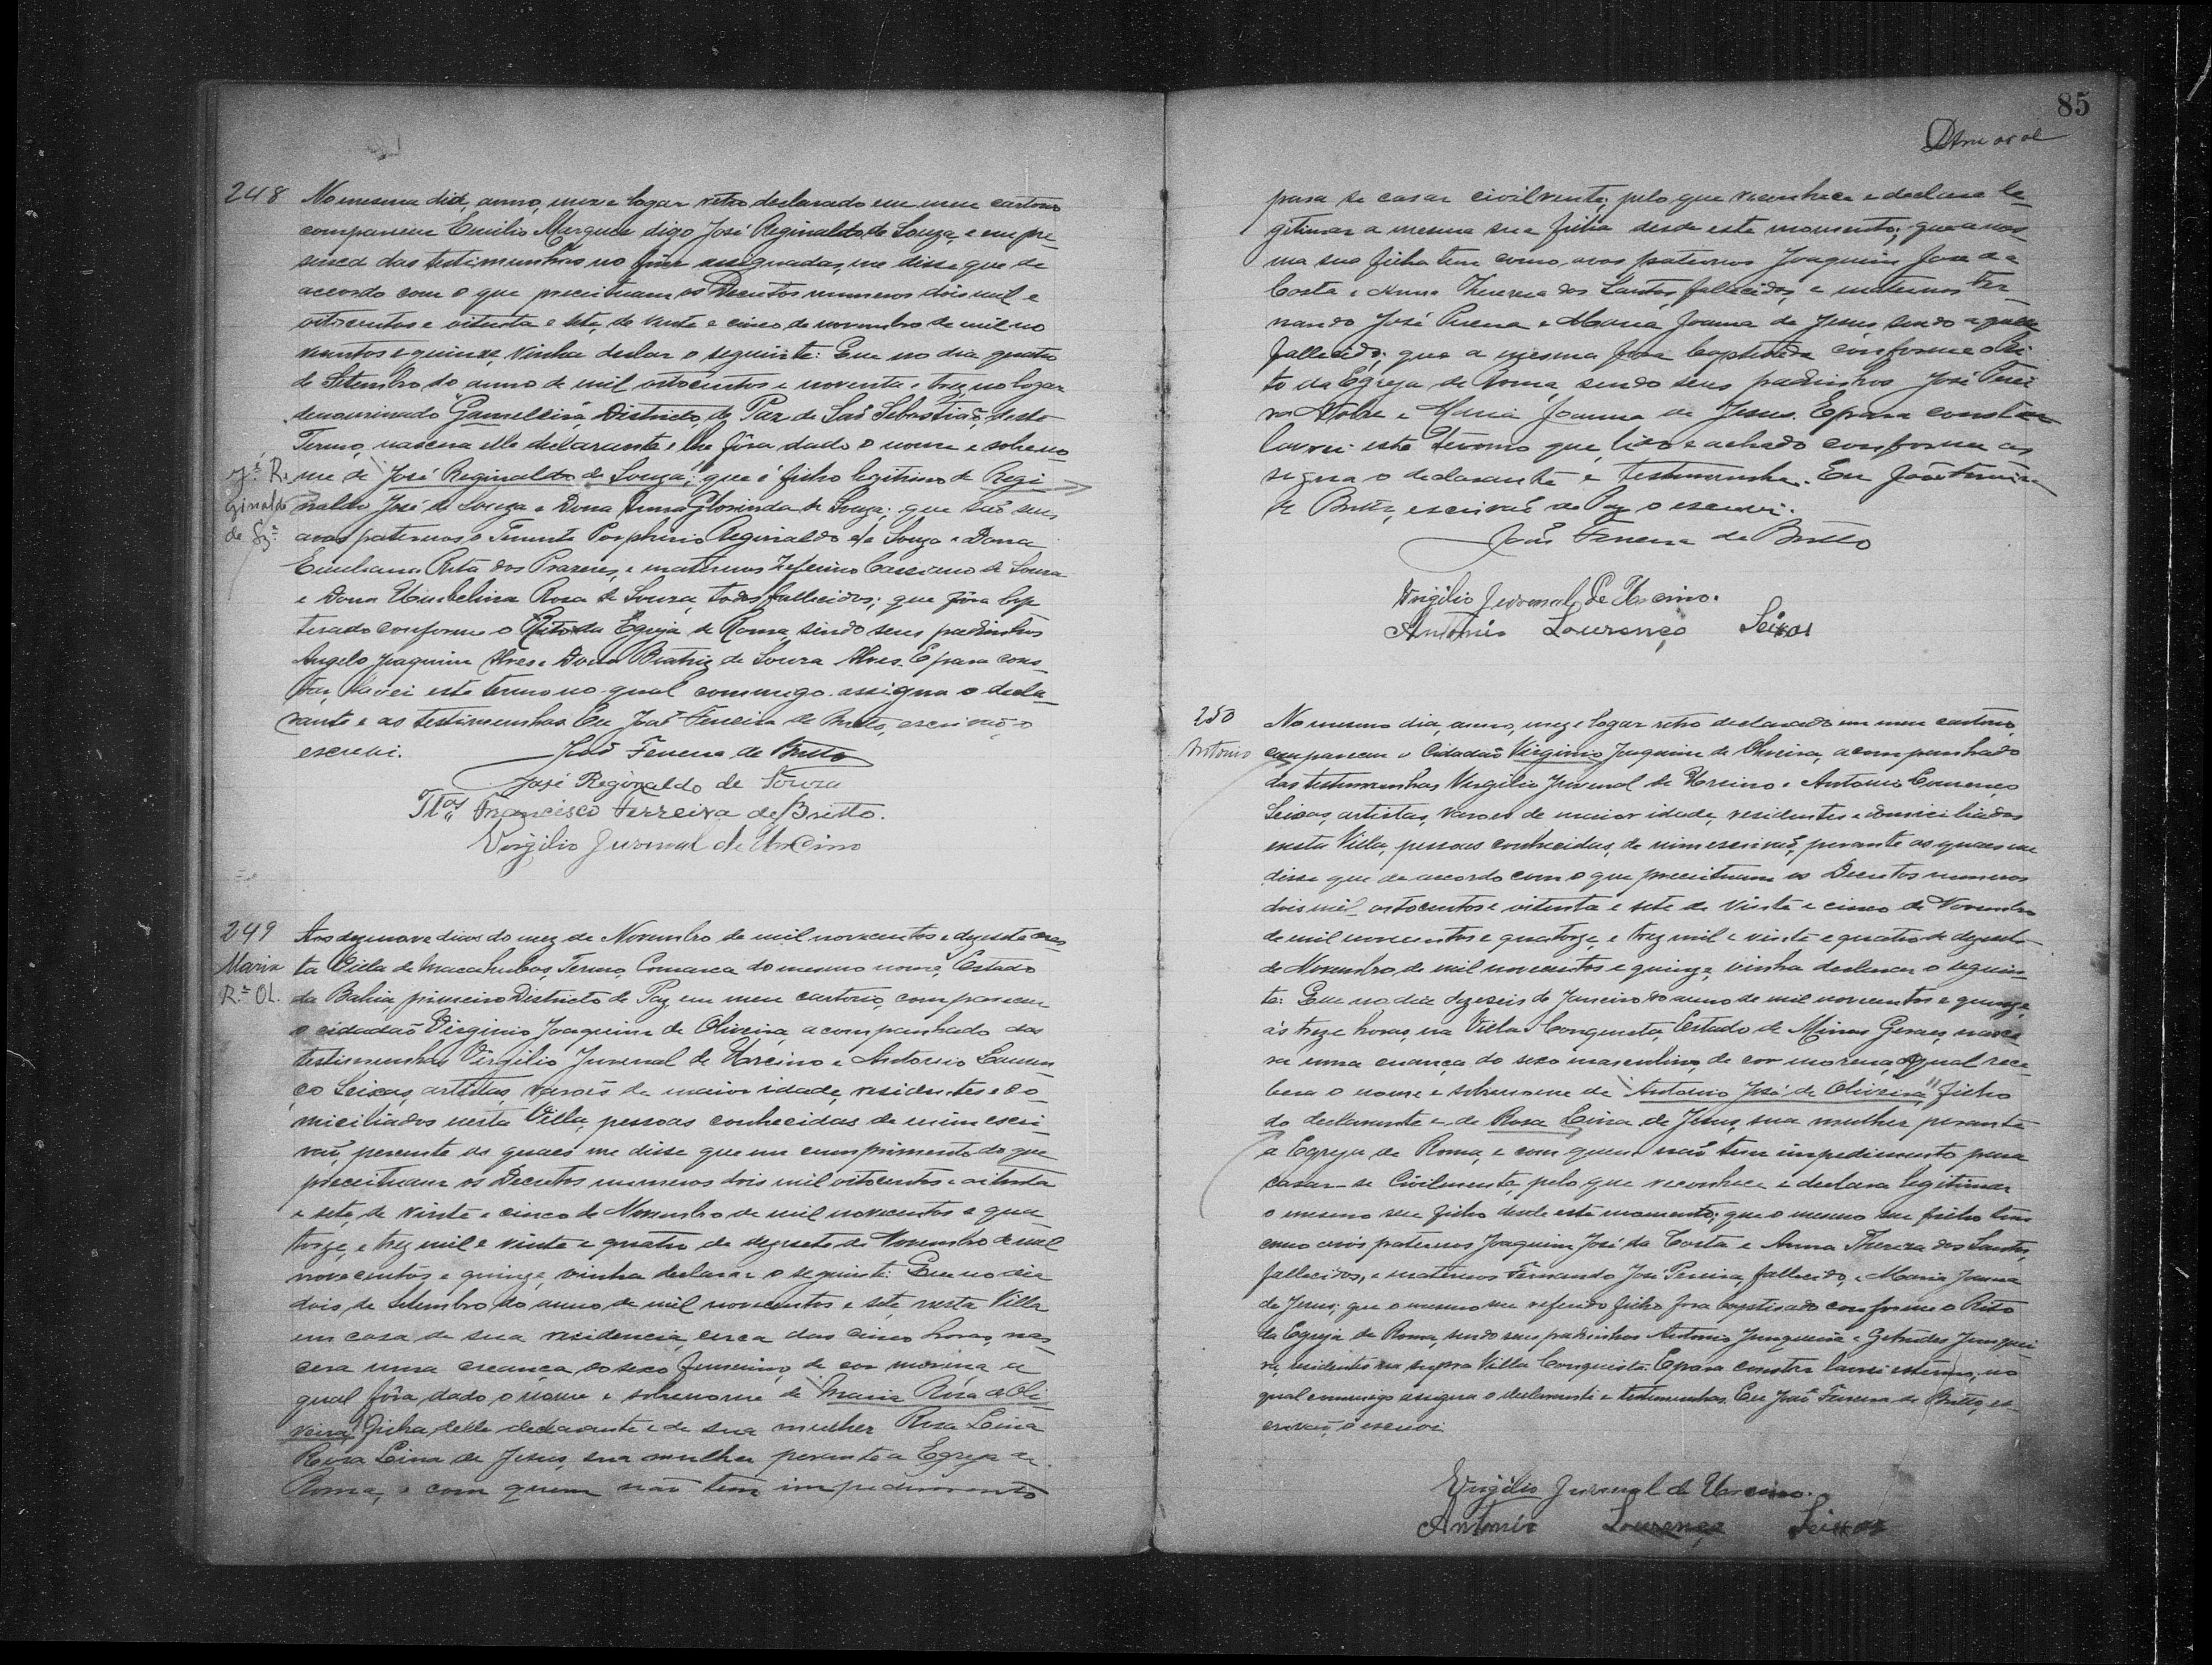 248 No mesmo dia, anno, mez e logar retro declarado em meu cartorio
compareceu Emilio Marques digo José Reginaldo de Souza, e em pre-
sença das testimunhas no fim assignadas, me disse que de
accordo com o que preceituam os Decretos numeros dois mil e
oitocentos e oitenta e sete, de vinte e cinco de novembro de mil no
vecentos e quinze, vinha declarar o seguinte: Que no dia quatro
de Setembro do anno de mil oitocentos e noventa e trez, no logar
denominado "Gamelleira, Districto de Paz de São Sebastião, deste
Termo, nascera elle declarante e lhe fôra dado o nome e sobreno
me de "José Reginaldo de Souza," que é filho legitimo de Regi
naldo José de Souza e Dona Anna Glorinda de Souza; que são seus
avos paternos o Tenente Porphirio Reginaldo de Souza e Dona
Emiliana Rita dos Prazeres, e maternos Zeferino Cassiano de Souza
e Dona Umbelina Rosa de Souza, todos fallecidos; que fôra bap
tisado conforme o Rito da Egreja de Roma, sendo seus padrinhos
Angelo Joaquim Alves e Dona Beatriz de Souza Alves. E para cons-
tar, lavrei este termo no qual commigo assigna o decla-
rante e as testimunhas. Eu João Ferreira de Britto, escrivão, o
escrevi.
Jé. R.
ginaldo
de Sza
João Ferreira de Britto
José Reginaldo de Souza
Ttas Francisco Ferreira de Britto.
Virgilio Juvenal de Urcino
249
Maria
Rª Ol.
Aos dezenove dias do mez de Novembro de mil novecentos e dezesete nes
ta Villa de Macahubas, Termo, Comarca do mesmo nome, Estado
da Bahia, primeiro Districto de Paz em meu cartorio, compareceu
o cidadão Virginio Joaquim de Oliveira, acompanhado das
testimunhas Virgilio Juvenal de Urcino e Antonio Louren
ço Seixas, artistas, varões de maior idade, residentes e do-
miciliados nesta Villa, pessoas conhecidas de mim escri-
vão, perante as quaes me disse que em cumprimento do que
preceituam os Decretos numeros dois mil oitocentos e oitenta
e sete, de vinte e cinco de Novembro de mil novecentos e qua-
torze, e trez mil e vinte e quatro de dezesete de Novembro de mil
novecentos e quinze, vinha declarar o seguinte: Que no dia
dois de Setembro do anno de mil novecentos e sete, nesta Villa
em casa de sua residencia, cerca das cinco horas, nas
cera uma creança do sexo femenino, de cor morena, a
qual fôra dado o nome e sobrenome de "Maria Rosa de Oli
veira," filha delle declarante e de sua mulher Rosa Leina
Rosa Leina de Jesus, sua mulher perante a Egreja de
Roma, e com quem não tem impedimento
85
para se casar civilmente; pelo que reconhece e declara le-
gitimar a mesma sua filha desde este momento; que a mes-
ma sua filha tem como avos paternos Joaquim José da
Costa e Anna Thereza dos Santos, fallecidos, e maternos Fer-
nando José Pereira e Maria Joanna de Jesus, sendo aquelle
fallecido; que a mesma fora baptisada conforme o Ri-
to da Egreja de Roma, sendo seus padrinhos José Perei
ra Nobre e Maria Joanna de Jesus. E para constar
lavrei este termo que, lido e achado conforme as
signa o declarante e testimunhas. Eu João Ferreira
de Britto, escrivão de Paz o escrevi.
João Ferreira de Britto
Virgilio Juvenal de Urcino.
Antonio Lourenço Seixas
250
Antonio
No mesmo dia, anno, mez e logar retro declarado em meu cartorio,
compareceu o Cidadão Virginio Joaquim de Oliveira, acompanhado
das testimunhas Virgilio Juvenal de Urcino e Antonio Lourenço
Seixas, artistas, varões de maior idade, residentes e domiciliados
nesta Villa, pessoas conhecidas, de mim escrivão, perante as quaes me
disse que de accordo com o que preceituam os Decretos numeros
dois mil oitocentos e oitenta e sete de vinte e cinco de Novembro
de mil novecentos e quatorze, e trez mil e vinte e quatro de dezesete
de Novembro de mil novecentos e quinze, vinha declarar o seguin-
te: Que no dia dezeseis de Janeiro do anno de mil novecentos e quinze,
ás treze horas, na Villa Conquista, Estado de Minas Geraes, nasce
ra uma creança do sexo masculino, de cor morena, a qual rece
bera o nome e sobrenome de "Antonio José de Oliveira", filho
do declarante e de Rosa Leina de Jesus, sua mulher perante
a Egreja de Roma, e com quem não tem impedimento para
casar-se Civilmente, pelo que reconhece e declara legitimar
o mesmo seu filho desde este momento; que o mesmo seu filho tem
como avós paternos Joaquim José da Costa e Anna Thereza dos Santos,
fallecidos, e maternos Fernando José Pereira, fallecido, e Maria Joanna
de Jesus; que o mesmo seu referido filho fora baptisado conforme o Rito
da Egreja de Roma, sendo seus padrinhos Antonio Junqueira e Getrudes Junquei
ra, residentes na supra Villa Conquista. E para constar lavrei este termo, no
qual commigo assigna o declarante e testimunhas. Eu João Ferreira de Britto, es-
crivão, o escrevi
Virgilio Juvenal de Urcino.
Antonio Lourenço Seixas